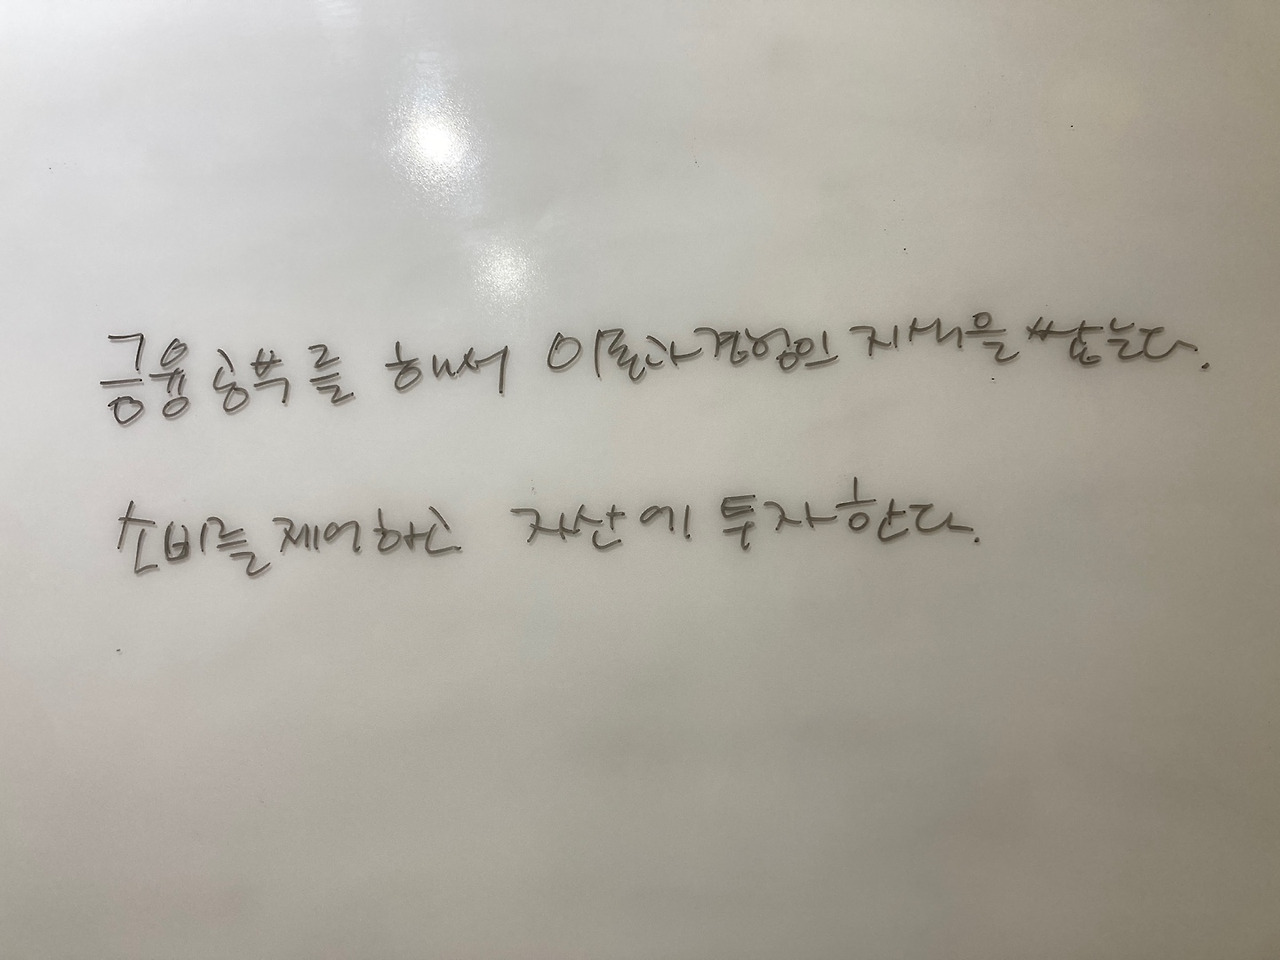 금융 공부를 해서 이론과 경험인 지식을 쌓는다.
소비를 제어하고 자산에 투자한다.